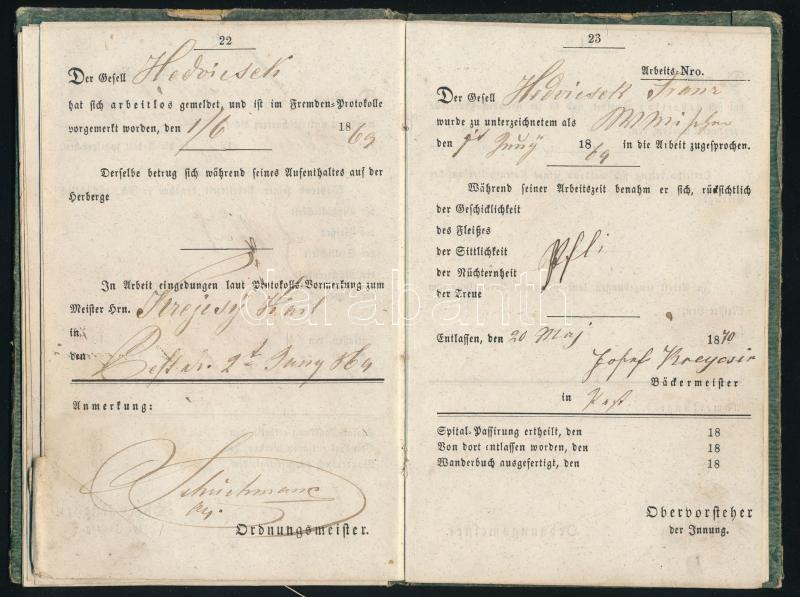 22
Der Gesell Hedvicsek
hat sich arbeitlos gemeldet, und ist im Fremden-Protokolle
vorgemerkt worden, den 1/6 1869
Derselbe betrug sich während seines Aufenthaltes auf der
Herberge
In Arbeit eingedungen laut Protokolls-Vormerkung zum
Meister Hrn. Krejcsy Karl
in
den Pest d. 2t Juny 869
Anmerkung:
Schuchmann
Ordnungsmeister.
23
Arbeits-Nro.
Der Gesell Hedvicsek Franz
wurde zu unterzeichnetem als
den Juny 1869 in die Arbeit zugesprochen.
Während seiner Arbeitszeit benahm er sich, rücksichtlich
der Geschicklichkeit
des Fleißes
der Sittlichkeit
der Nüchternheit
der Treue
Entlassen, den 20 Maj 1870
Josef
Bäckermeister
in Pest
Spital-Passirung ertheilt, den 18
Von dort entlassen worden, den 18
Wanderbuch ausgefertigt, den 18
Obervorsteher
der Innung.
darabanth